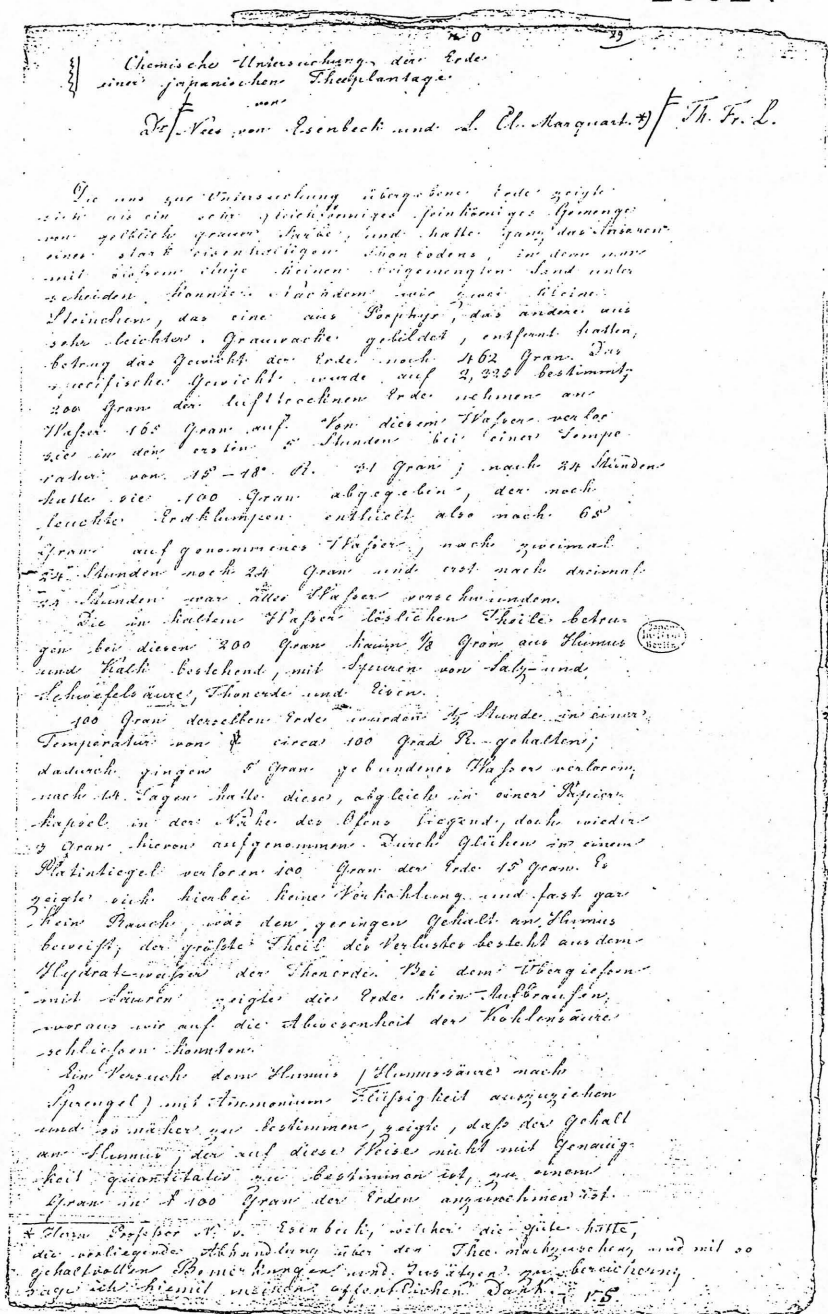 no 89
Chemische Untersuchung der Erde
einer japanischen Theeplantage
von
Dr. Nees von Esenbeck und L. Cl. Marquart. *) Th. Fr. L.
Die uns zur Untersuchung übergebene Erde zeigte
sich als ein sehr gleichförmiges feinkörniges Gemenge
von gelblich grauer Farbe, und hatte ganz das Ansehen
eines stark eisenhaltigen Thonbodens, in dem man
mit bloßem Auge keinen beigemengten Sand unter
scheiden konnte. Nachdem wir zwei kleine
Steinchen, das eine aus Porphyr, das andere aus
sehr leichter Grauwacke gebildet, entfernt hatten,
betrug das Gewicht der Erde noch 462 Gran. Das
specifische Gewicht wurde auf 2,325 bestimmt;
200 Gran der lufttrocknen Erde nehmen an
Waßer 165 Gran auf. Von diesem Waßer verlor
sie in den ersten 5 Stunden bei einer Tempe
ratur von 15-18° R. 31 Gran; nach 24 Stunden
hatte sie 100 Gran abgegeben, der noch
feuchte Erdklumpen enthielt also noch 65
Gran aufgenommenes Waßer, nach zweimal
24 Stunden noch 24 Gran und erst nach dreimal
24 Stunden war alles Waßer verschwunden.
Die in kaltem Waßer löslichen Theile betru-
gen bei diesen 200 Gran kaum 1/8 Gran aus Humus
und Kalk bestehend, mit Spuren von Salz- und
Schwefelsäure, Thonerde und Eisen.
100 Gran derselben Erde wurden 1/2 Stunde in einer
Temperatur von circa 100 Grad R. gehalten;
dadurch gingen 5 Gran gebundenes Waßer verloren;
nach 14 Tagen hatte diese, obgleich in einer Papier-
kapsel in der Nähe des Ofens liegend, doch wieder
3 Gran hievon aufgenommen. Durch Glühen in einem
Platintiegel verloren 100 Gran der Erde 15 Gran. Es
zeigte sich hierbei keine Verkohlung und fast gar
kein Rauch, was den geringen Gehalt an Humus
beweißt; der größte Theil des Verlustes besteht aus dem
Hydratwaßer der Thonerde. Bei dem Übergießen
mit Säuren zeigte die Erde kein Aufbrausen,
woraus wir auf die Abwesenheit der Kohlensäure
schließen konnten.
Ein Versuch dem Humus (Humussäure nach
Sprengel) mit Ammonium Flüßigkeit auszuziehen
und so näher zu bestimmen, zeigte, daß der Gehalt
an Humus, der auf diese Weise nicht mit Genauig-
keit quantitativ zu bestimmen ist, zu einem
Gran in 100 Gran der Erden anzunehmen ist.
* Herrn Profeßor N. v. Esenbeck, welcher die Güte hatte,
die vorliegende Abhandlung über den Thee nachzusehen, und mit so
gehaltvollen Bemerkungen und Zusätzen zu bereichern,
sage ich hiemit meinen öffentlichen Dank.